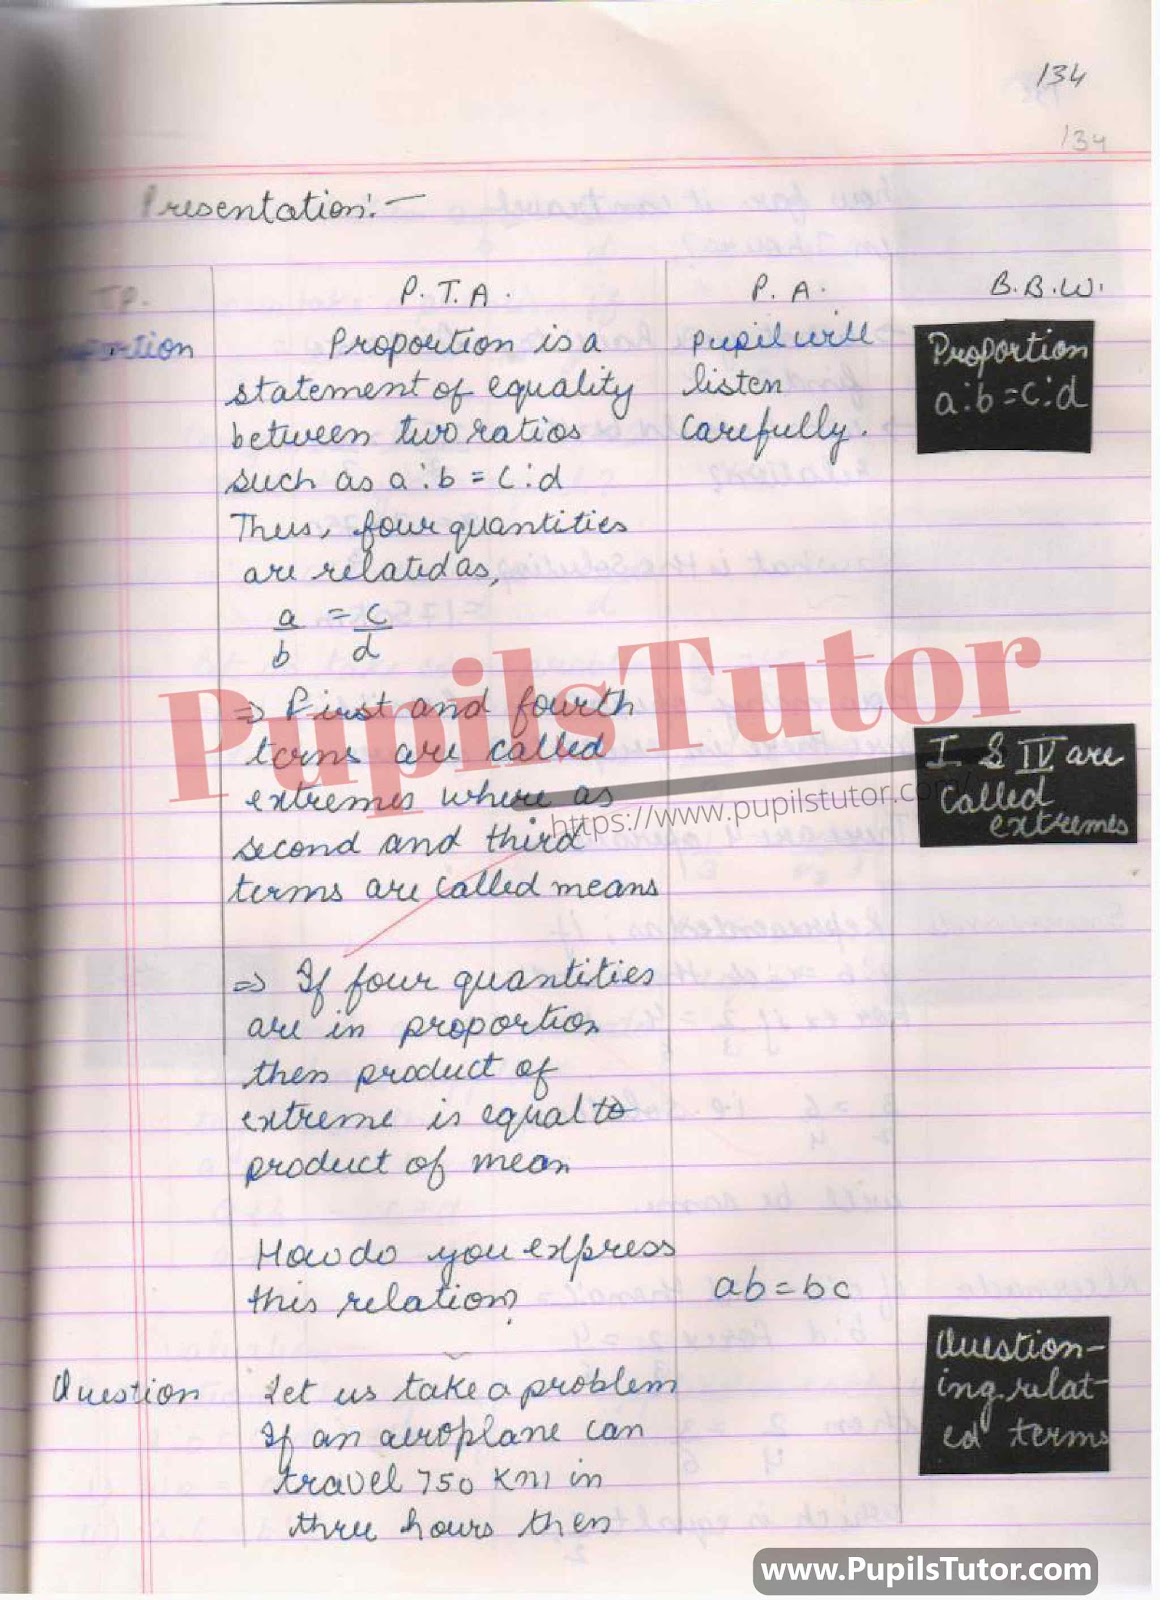 134
134
Presentation:-
TP.
P.T.A.
P.A.
B.B.W.
Proportion is a
statement of equality
between two ratios
such as a:b = c:d
Thus, four quantities
are related as,
a/b = c/d
⇒ First and fourth
terms are called
extremes where as
second and third
terms are called means
⇒ If four quantities
are in proportion
then product of
extreme is equal to
product of mean
How do you express
this relation?
Question
Let us take a problem
If an aeroplane can
travel 750 Km in
three hours then
Pupil will
listen
carefully.
ab = bc
Proportion
a:b = c:d
I & IV are
called
extremes
Question-
ing relat-
ed terms
PupilsTutor
https://www.pupilstutor.com/
www.PupilsTutor.com